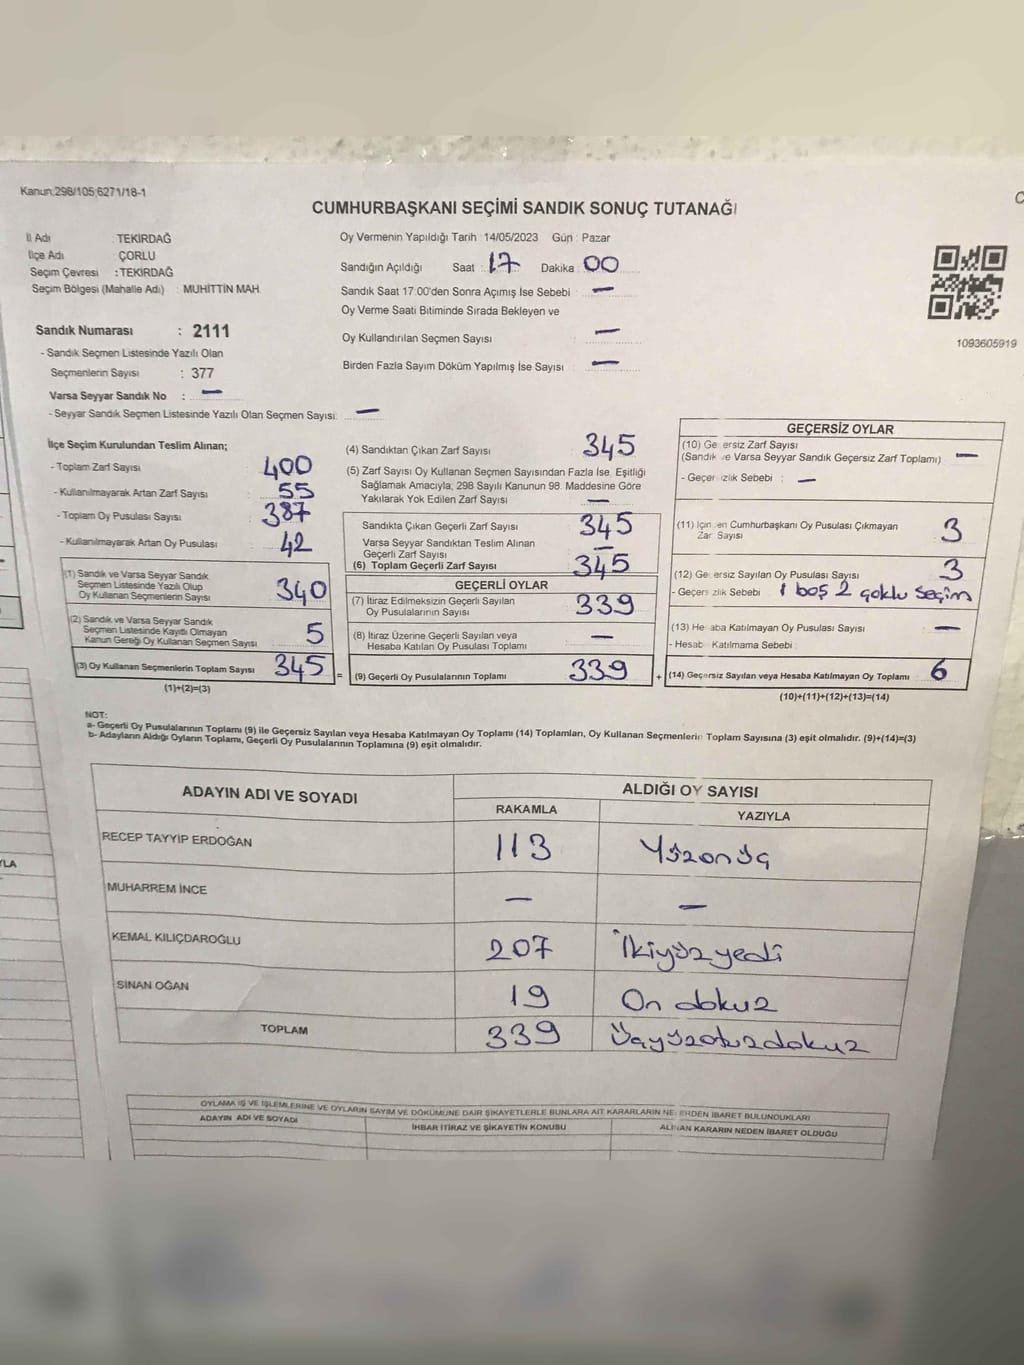 Kanun:298/105;6271/18-1
CUMHURBAŞKANI SEÇİMİ SANDIK SONUÇ TUTANAĞI
İl Adı : TEKİRDAĞ
İlçe Adı : ÇORLU
Seçim Çevresi : TEKİRDAĞ
Seçim Bölgesi (Mahalle Adı) : MUHİTTİN MAH.
Sandık Numarası : 2111
- Sandık Seçmen Listesinde Yazılı Olan
Seçmenlerin Sayısı : 377
Varsa Seyyar Sandık No : —
- Seyyar Sandık Seçmen Listesinde Yazılı Olan Seçmen Sayısı: —
Oy Vermenin Yapıldığı Tarih : 14/05/2023 Gün : Pazar
Sandığın Açıldığı Saat : 17 Dakika : 00
Sandık Saat 17:00'den Sonra Açımış İse Sebebi : —
Oy Verme Saati Bitiminde Sırada Bekleyen ve
Oy Kullandırılan Seçmen Sayısı : —
Birden Fazla Sayım Döküm Yapılmış İse Sayısı : —
1093605919
İlçe Seçim Kurulundan Teslim Alınan;
- Toplam Zarf Sayısı 400
- Kullanılmayarak Artan Zarf Sayısı 55
- Toplam Oy Pusulası Sayısı 387
- Kullanılmayarak Artan Oy Pusulası 42
(1) Sandık ve Varsa Seyyar Sandık
Seçmen Listesinde Yazılı Olup
Oy Kullanan Seçmenlerin Sayısı 340
(2) Sandık ve Varsa Seyyar Sandık
Seçmen Listesinde Kayıtlı Olmayan
Kanun Gereği Oy Kullanan Seçmen Sayısı 5
(3) Oy Kullanan Seçmenlerin Toplam Sayısı 345
(1)+(2)=(3)
(4) Sandıktan Çıkan Zarf Sayısı 345
(5) Zarf Sayısı Oy Kullanan Seçmen Sayısından Fazla İse, Eşitliği
Sağlamak Amacıyla, 298 Sayılı Kanunun 98. Maddesine Göre
Yakılarak Yok Edilen Zarf Sayısı —
Sandıkta Çıkan Geçerli Zarf Sayısı 345
Varsa Seyyar Sandıktan Teslim Alınan
Geçerli Zarf Sayısı —
(6) Toplam Geçerli Zarf Sayısı 345
GEÇERLİ OYLAR
(7) İtiraz Edilmeksizin Geçerli Sayılan
Oy Pusulalarının Sayısı 339
(8) İtiraz Üzerine Geçerli Sayılan veya
Hesaba Katılan Oy Pusulası Toplamı —
= (9) Geçerli Oy Pusulalarının Toplamı 339
GEÇERSİZ OYLAR
(10) Ge ersiz Zarf Sayısı
(Sandık ve Varsa Seyyar Sandık Geçersiz Zarf Toplamı) —
- Geçer izlik Sebebi : —
(11) İçin en Cumhurbaşkanı Oy Pusulası Çıkmayan
Zar Sayısı 3
(12) Ge ersiz Sayılan Oy Pusulası Sayısı 3
- Geçers zlik Sebebi 1 boş 2 çoklu seçim
(13) He aba Katılmayan Oy Pusulası Sayısı —
- Hesab Katılmama Sebebi
+ (14) Geçersiz Sayılan veya Hesaba Katılmayan Oy Toplamı 6
(10)+(11)+(12)+(13)=(14)
NOT:
a- Geçerli Oy Pusulalarının Toplamı (9) ile Geçersiz Sayılan veya Hesaba Katılmayan Oy Toplamı (14) Toplamları, Oy Kullanan Seçmenlerin Toplam Sayısına (3) eşit olmalıdır. (9)+(14)=(3)
b- Adayların Aldığı Oyların Toplamı, Geçerli Oy Pusulalarının Toplamına (9) eşit olmalıdır.
ADAYIN ADI VE SOYADI
ALDIĞI OY SAYISI
RAKAMLA YAZIYLA
RECEP TAYYİP ERDOĞAN 113 Yüzonüç
MUHARREM İNCE — —
KEMAL KILIÇDAROĞLU 207 İkiyüzyedi
SİNAN OĞAN 19 On dokuz
TOPLAM 339 Üçyüzotuzdokuz
OYLAMA İŞ VE İŞLEMLERİNE VE OYLARIN SAYIM VE DÖKÜMÜNE DAİR ŞİKAYETLERLE BUNLARA AİT KARARLARIN NE ERDEN İBARET BULUNDUKLARI
ADAYIN ADI VE SOYADI İHBAR İTİRAZ VE ŞİKAYETİN KONUSU ALINAN KARARIN NEDEN İBARET OLDUĞU